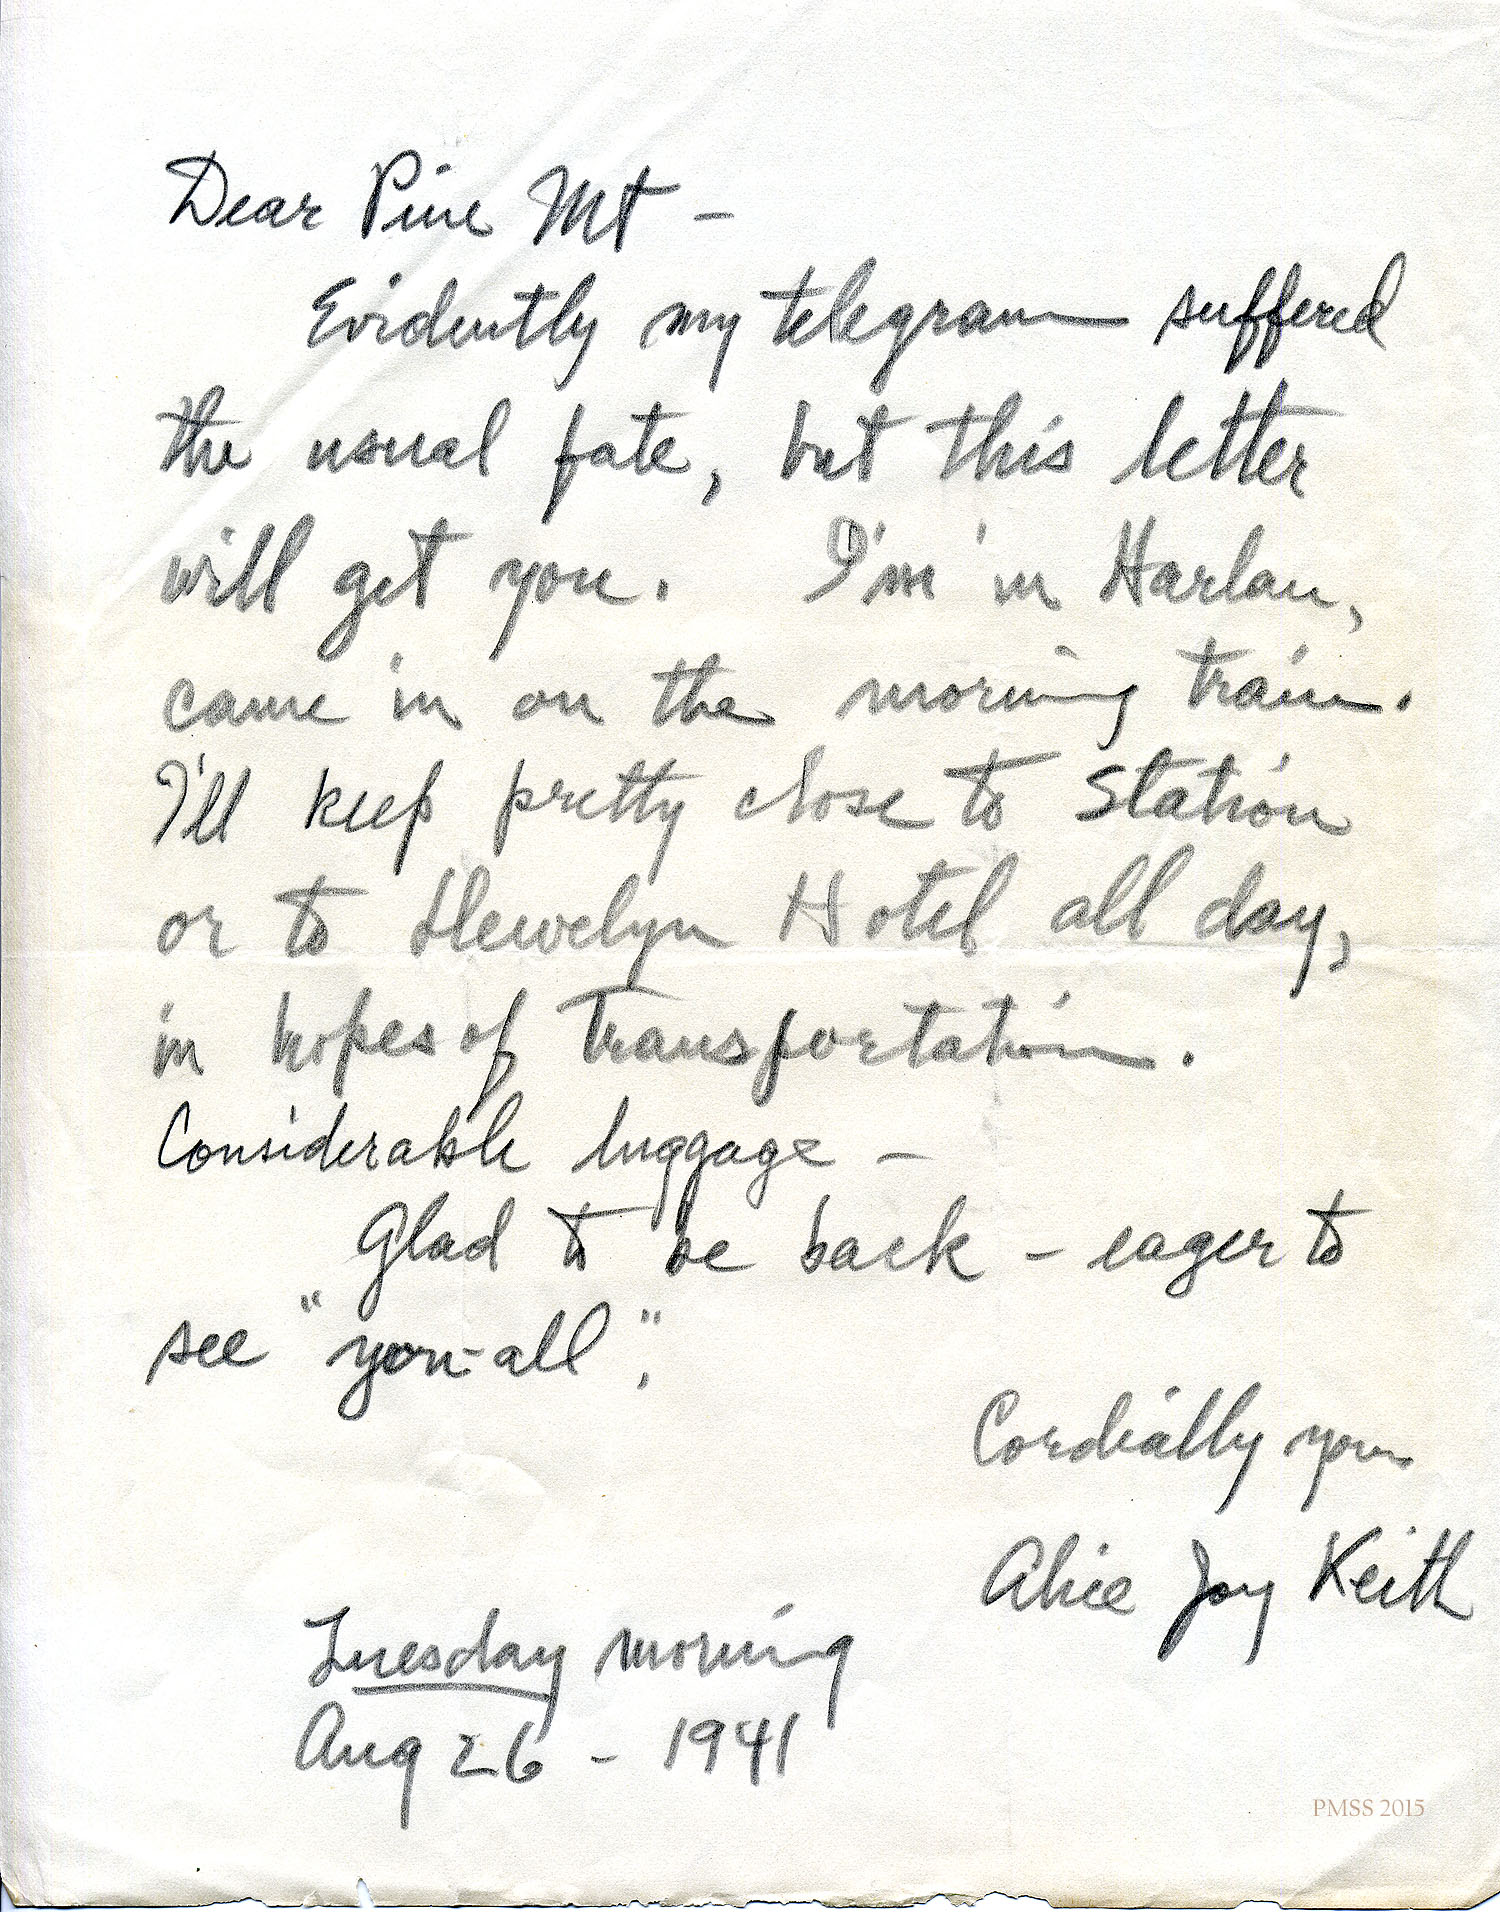 Dear Pine Mt –
Evidently my telegram suffered
the usual fate, but this letter
will get you. I'm in Harlan,
came in on the morning train.
I'll keep pretty close to Station
or to Llewelyn Hotel all day,
in hopes of transportation.
Considerable luggage –
Glad to be back – eager to
see "you-all",
Cordially yours
Alice Joy Keith
Tuesday morning
Aug 26 - 1941
PMSS 2015